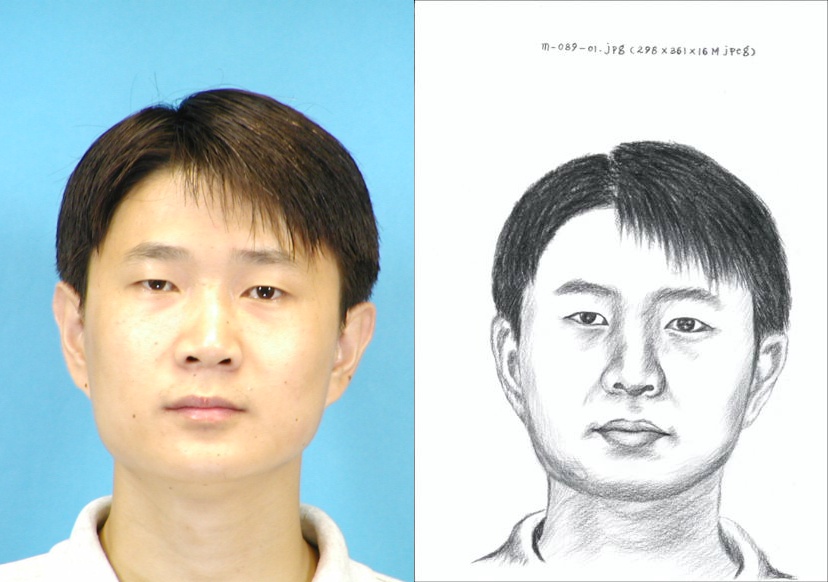 m-089-01.jpg (296×361×16M jpeg)